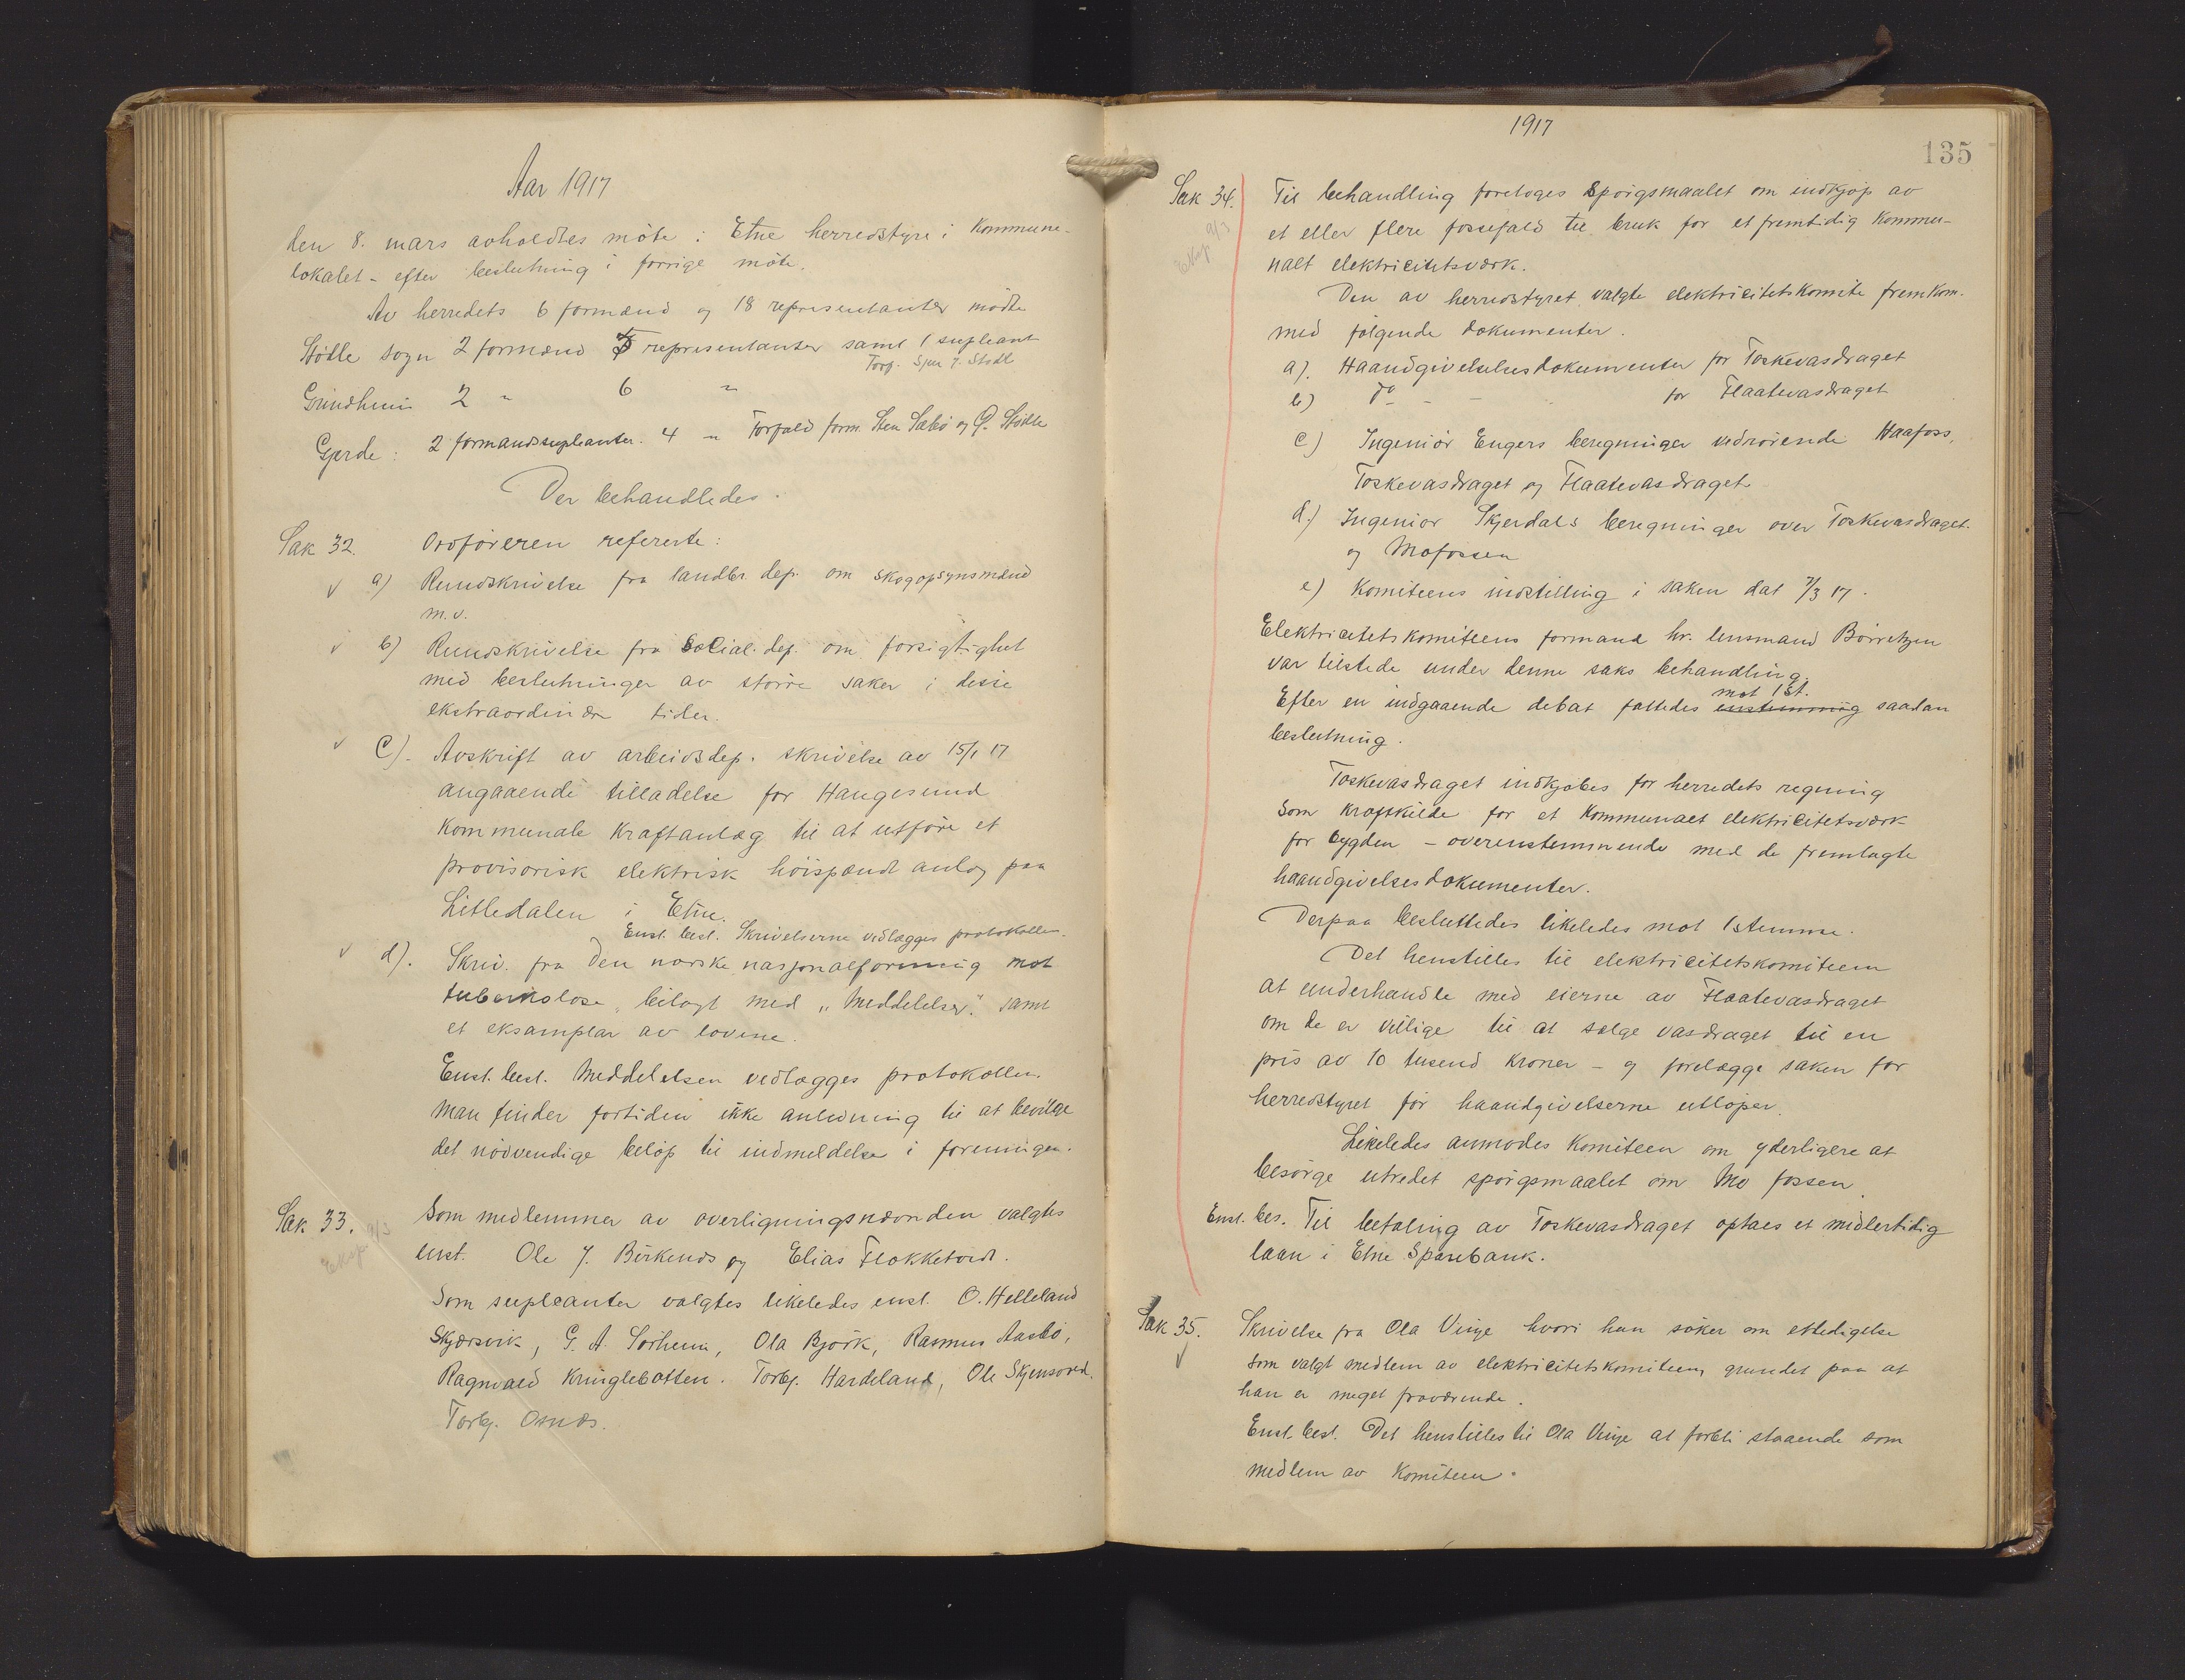 Aar 1917
den 8. mars avholdtes möte i Etne herredstyre i Kommune-
lokalet - efter beslutning i forrige möte.
Av herredets 6 formænd og 18 representanter mödte
Stödle sogn 2 formænd 5 representanter samt 1 supleant
Torg. Sjur J. Stödl
Grindheim 2 " 6 "
Gjerde: 2 formandssupleanter. 4 " Forfald form. Sten Sæbö og Stödle
Der behandledes.
Sak 32. Ordföreren refererte:
√ a) Rundskrivelse fra landbr. dep. om skogopsynsmænd
m.v.
√ b) Rundskrivelse fra Social. dep. om forsigtighet
med beslutninger av större saker i disse
ekstraordinære tider.
√ C). Avskrift av arbeidsdep. skrivelse av 15/1 17
angaaende tilladelse for Haugesund
Kommunale Kraftanlæg til at utföre et
provisorisk elektrisk höispændt anlæg paa
Litledalen i Etne.
Enst. besl. Skrivelserne vedlægges protokollen.
√ d). Skriv. fra Den norske nasjonalforening mot
tuberkolose, bilagt med „Meddelelser." samt
et eksamplar av lovene.
Enst. besl. Meddelelsen vedlægges protokollen.
Man finder fortiden ikke anledning til at bevilge
det nödvendige belöp til indmeldelse i foreningen.
Sak 33. Som medlemmer av overligningsnævnden valgtes
9/3
Eksp.
enst. Ole J. Birkenes og Elias Flokketvedt.
Som supleanter valgtes likeledes enst. O. Helleland
Skjærsvik, G. A. Sörheim, Ola Björk, Rasmus Aasbö,
Ragnvald Kringlebotten. Torbj. Hardeland, Ole Skjensvold.
Torbj. Osnes.
1917
135
Sak 34. Til behandling foretoges Spörgsmaalet om indkjöp av
9/3
Eksp
et eller flere fossefald til bruk for et fremtidig Kommu-
nalt elektricitetsværk.
Den av herredstyret valgte elektricitetskomite fremkom.
med fölgende dokumenter.
a). Haandgivelseles dokumenter for Toskevasdraget
b) do - - - for Flaatevasdraget
c) Ingeniör Engers beregninger vedrörende Haafoss,
Toskevasdraget og Flaatevasdraget
d.) Ingeniör Skjerdals beregninger over Toskevasdraget.
og Mofossen
e) Komiteens indstilling i saken dat 7/3 17.
Elektricitetskomiteens formand hr. lensmand Börretzen
var tilstede under denne saks behandling.
mot 1 st.
Efter en indgaaende debat fattedes enstemmig saadan
beslutning.
Toskevasdraget indkjöbes for herredets regning
som Kraftkilde for et Kommunalt elektricitetsværk
for bygden - overenstemmende med de fremlagte
haandgivelsesdokumenter.
Derpaa besluttedes likeledes mot 1 stemme.
Det henstilles til elektricitetskomiteen
at underhandle med eierne av Flaatevasdraget
om de er villige til at sælge vasdraget til en
pris av 10 tusend Kroner - og forelægge saken for
herredstyret för haandgivelserne utlöper.
Likeledes anmodes Komiteen om yderligere at
besörge utredet spörgsmaalet om Mo fossen.
Enst. bes. Til betaling av Toskevasdraget optaes et midlertidig
laan i Etne Sparebank.
Sak 35. Skrivelse fra Ola Vinje hvori han söker om etledigelse
√
som valgt medlem av elektricitetskomiteen, grundet paa at
han er meget fraværende.
Enst. besl. Det henstilles til Ola Vinje at forbli staaende som
medlem av Komiteen.